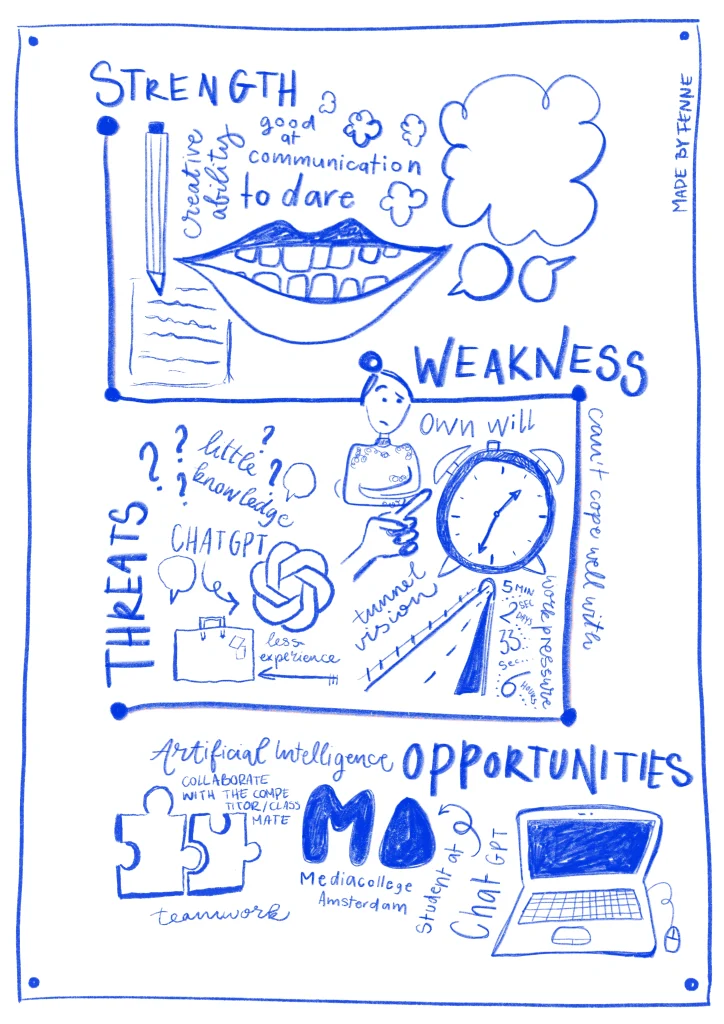 STRENGTH
MADE BY FENNE
creative
ability
good
at
communication
to dare
WEAKNESS
own will
can't cope well with
work pressure
tunnel
vision
5 MIN
2 SEC
DAYS
33
sec
6 HOURS
THREATS
? ? ? ? ?
little
knowledge
CHATGPT
less
experience
OPPORTUNITIES
Artificial Intelligence
COLLABORATE
WITH THE COMPE
TITOR/CLASS
MATE
teamwork
MA
Mediacollege
Amsterdam
Student at
Chat GPT